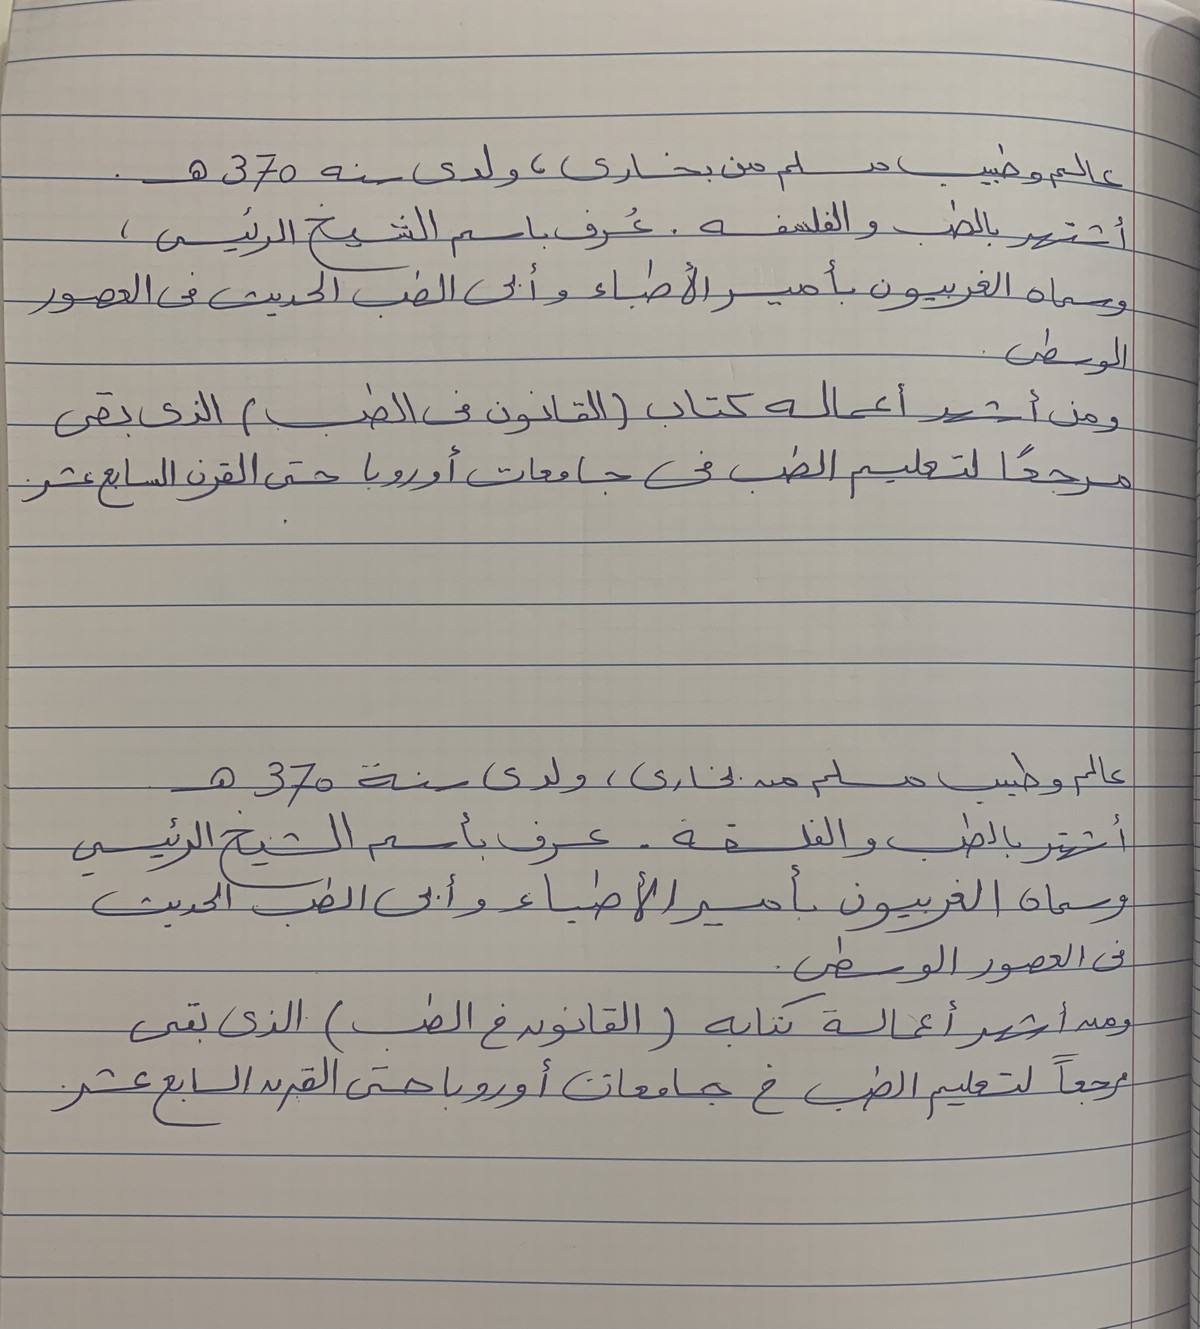 عالم وطبيب مسلم من بخارى، ولدى سنه 370 هـ .
أشتهر بالطب والفلسفه . عُرف باسم الشيخ الرئيسي ،
وسماه الغربيون بأمير الأطباء وأبى الطب الحديث فى العصور
الوسطى .
ومن أشهر أعماله كتاب (القانون فى الطب) الذى بقى
مرجعًا لتعليم الطب فى جامعات أوروبا حتى القرن السابع عشر
.
عالم وطبيب مسلم من بخارى، ولدى سنة 370 هـ
أشتهر بالطب والفلسفة . عرف بأسم الشيخ الرئيسي
وسماه الغربيون بأمير الأطباء وأبى الطب الحديث
فى العصور الوسطى .
ومن أشهر أعمالة كتابه (القانون في الطب) الذى بقى
مرجعاً لتعليم الطب في جامعات أوروبا حتى القرن السابع عشر